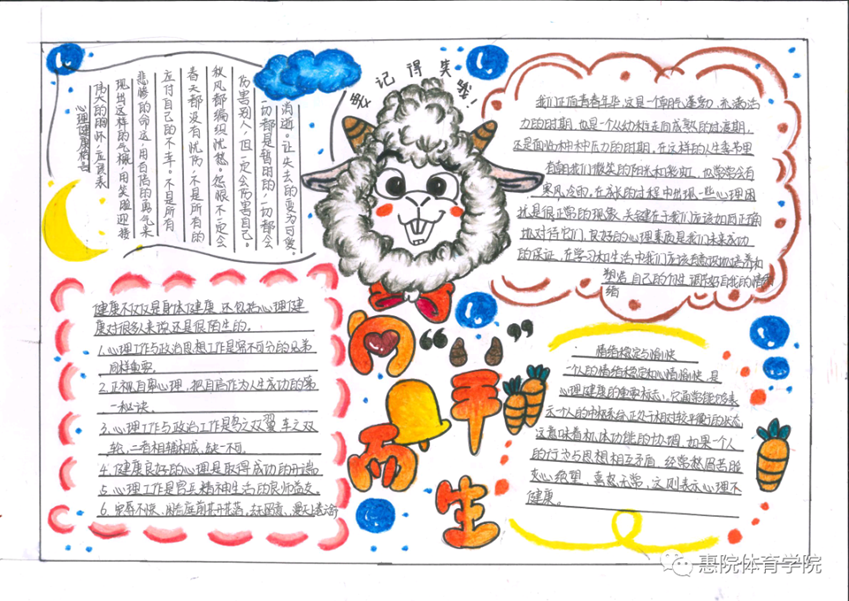 要记得笑哦！
心理健康格言
伟大的胸怀，应该表
现出这样的气概，用笑脸迎接
悲惨的命运，用百倍的勇气来
应付自己的不幸。不是所有
春天都没有忧伤，不是所有的
秋风都编织忧愁。怨恨不定会
伤害别人，但一定会伤害自己。
一切都是暂时的，一切都会
消逝。让失去的变为可爱。
我们正值青春年华，这是一个朝气蓬勃、充满活
力的时期，也是一个从幼稚走向成熟的过渡期，
还是面临种种压力的时期，在这样的人生季节里
有阳光
寒风、冷雨，在成长的过程中出现一些心理困
扰是很正常的现象，关键在于我们应该如何正确
地对待它们，良好的心理素质是我们未来成功
的保证，在学习和生活中我们应该
自己的个性
绪
健康不仅仅是身体健康，还包括心理健
康对很多人来说还是很陌生的。
1.心理工作与政治思想工作是密不可分的兄弟
同样重要。
2.正视自卑心理，把自马作为人生成功的第
一秘诀。
3.心理工作与政治工作是鸟之双翼，车之双
轮，二者相辅相成，缺一不可。
4.健康良好的心理是取得成功的开端
5.心理工作是官兵精神生活的良师益友。
6.宠辱不惊，闲看庭前花开花落，去留
向“羊”而生
情绪稳定与愉快
一个人的情绪稳定和心情愉快，是
心理健康的重要标志，它
示一个人的中枢系统正处于相对较平衡的状态
这意味着机体功能的协调。如果一个人
的行为与思想相互矛盾，经常愁眉苦脸
灰心绝望，喜怒无常，这则表示心理不
健康。
惠院体育学院